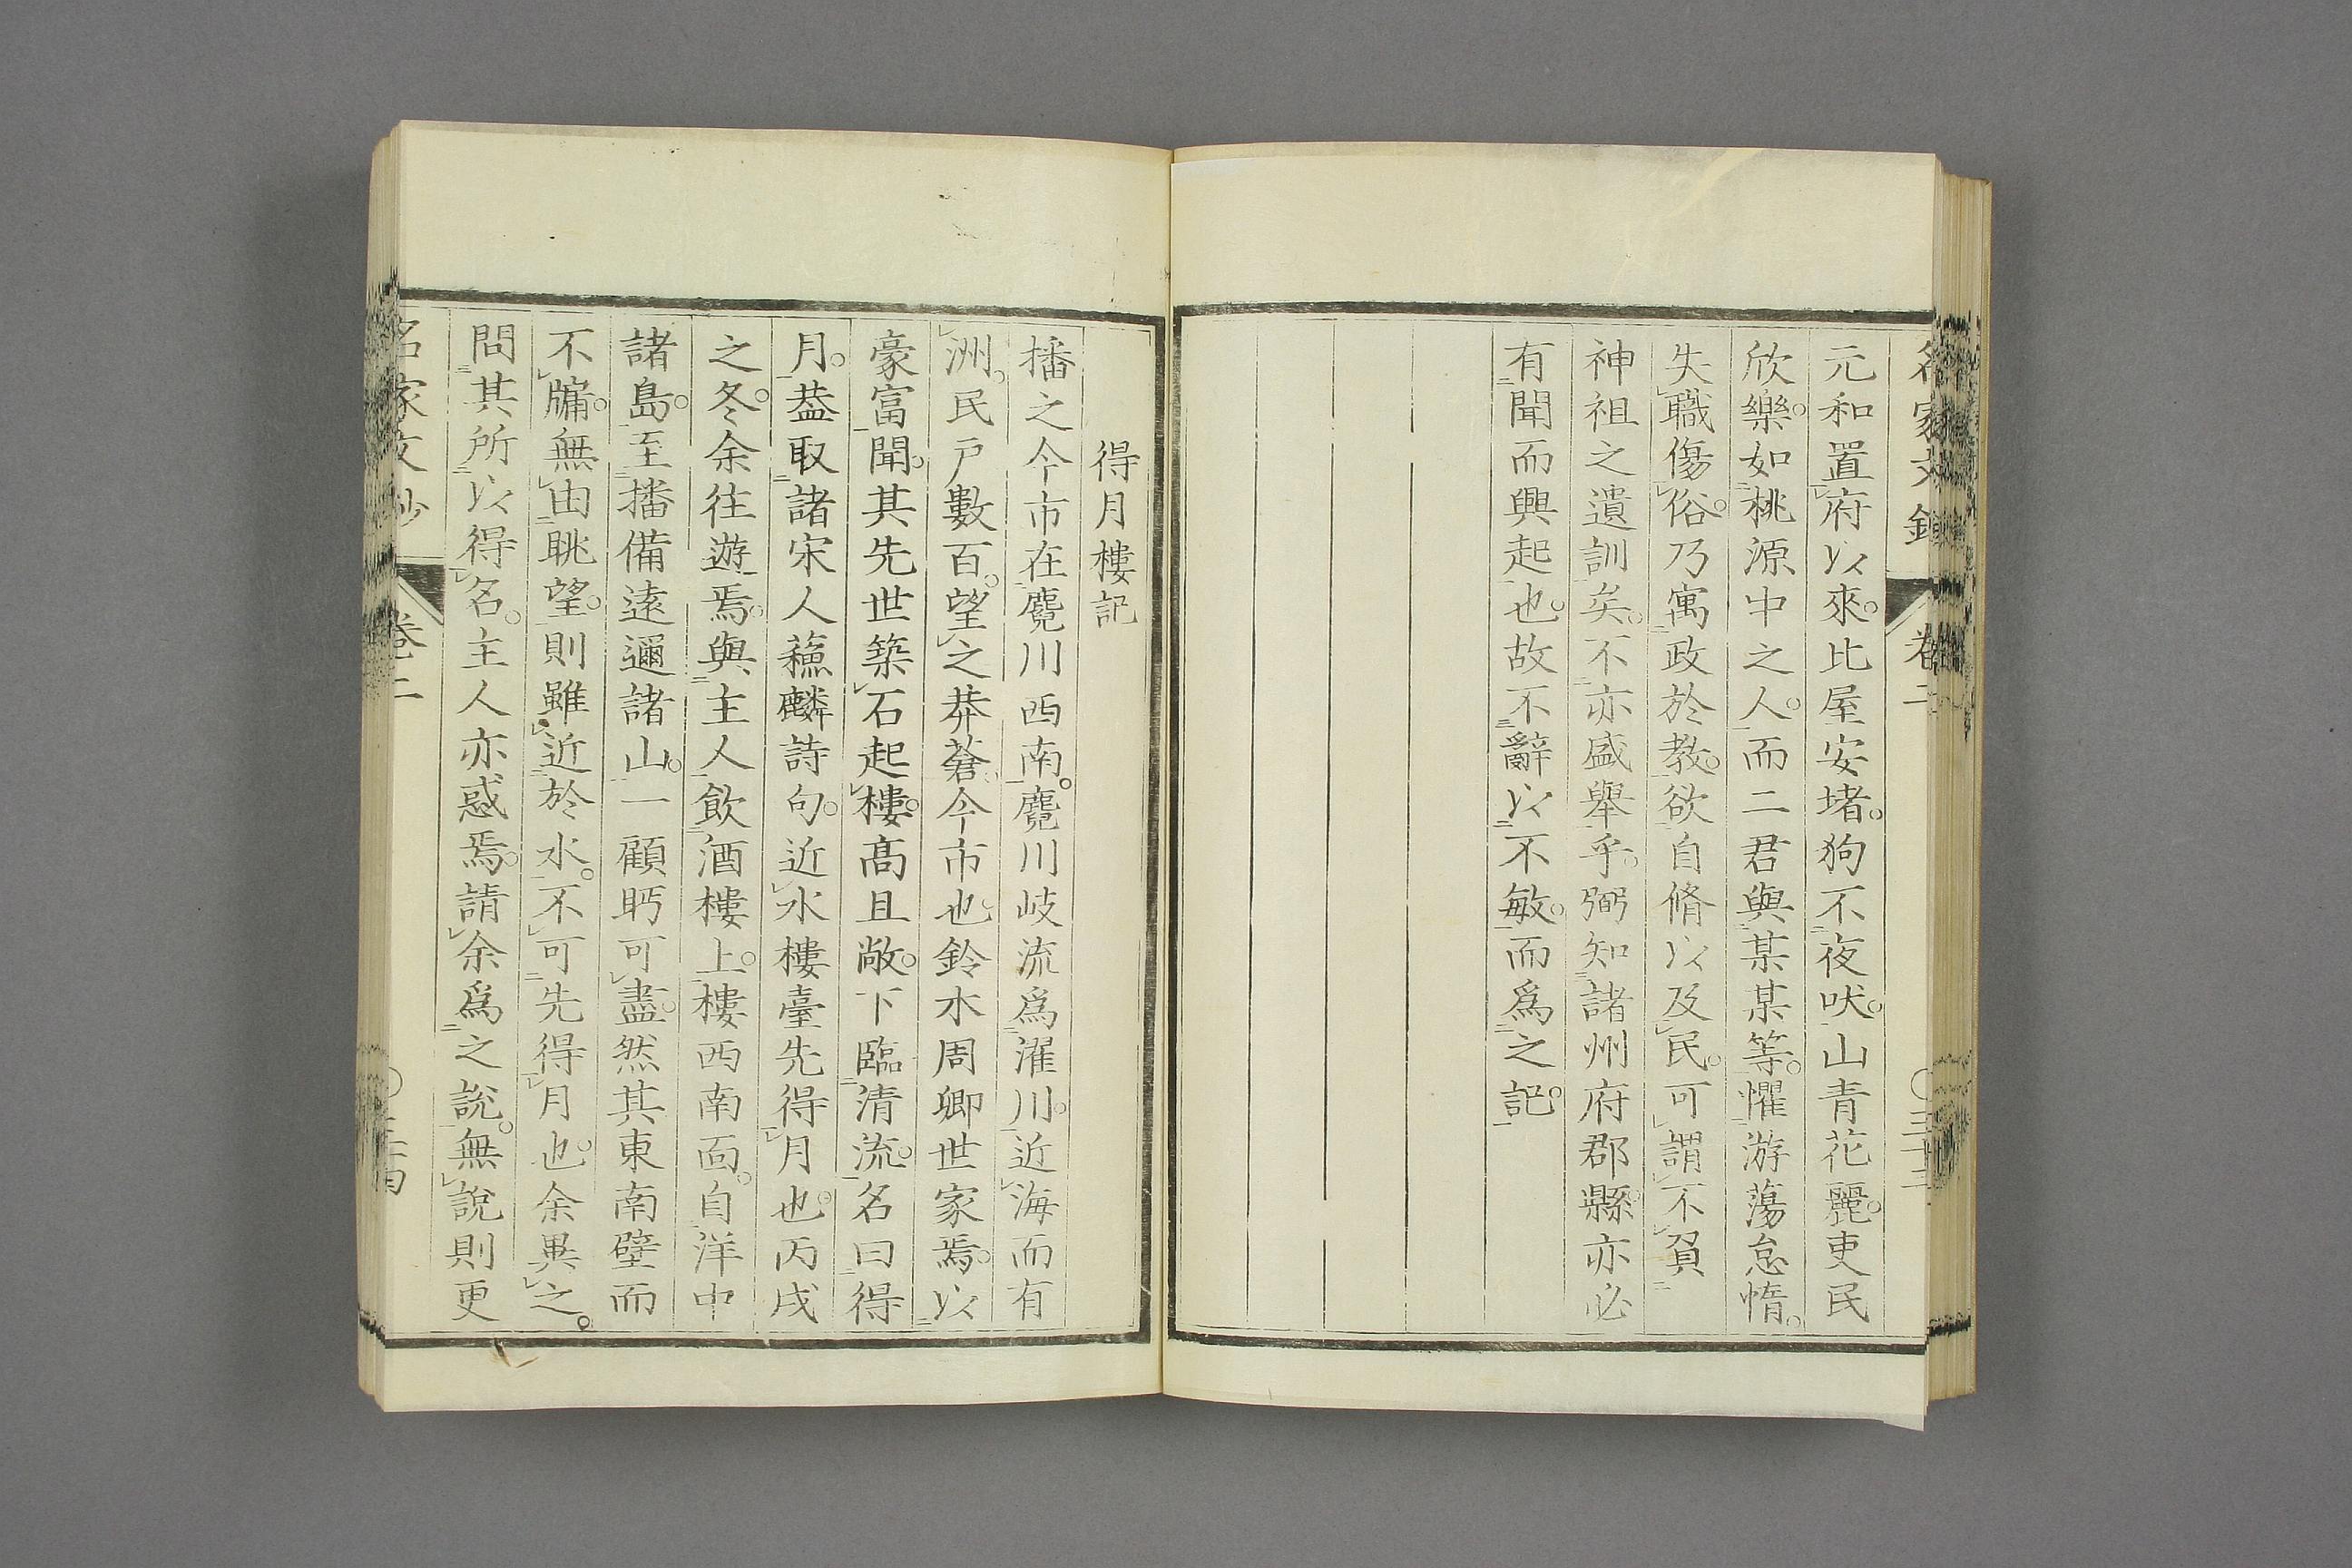 元和置府以來。比屋安堵。狗不夜吠。山青花麗。吏民
欣樂。如桃源中之人。而二君與某某等。懼游蕩怠惰。
失職傷俗。乃寓政於教。欲自脩以及民。可謂不負
神祖之遺訓矣。不亦盛舉乎。弼知諸州府郡縣。亦必
有聞而興起也。故不辭以不敏。而爲之記。
得月樓記
播之今市在麑川西南。麑川岐流爲濯川。近海而有
洲。民戶數百。望之莽蒼。今市也。鈴木周卿世家焉。以
豪富聞。其先世築石起樓。高且敞。下臨清流。名曰得
月。葢取諸宋人蘓麟詩句。近水樓臺先得月也。丙戌
之冬。余往遊焉。與主人飲酒樓上。樓西南面。自洋中
諸島。至播備遠邇諸山。一顧眄可盡。然其東南壁而
不牗。無由眺望。則雖近於水。不可先得月也。余異之。
問其所以得名。主人亦惑焉。請余爲之說。無說則更
名家文鈔
卷二